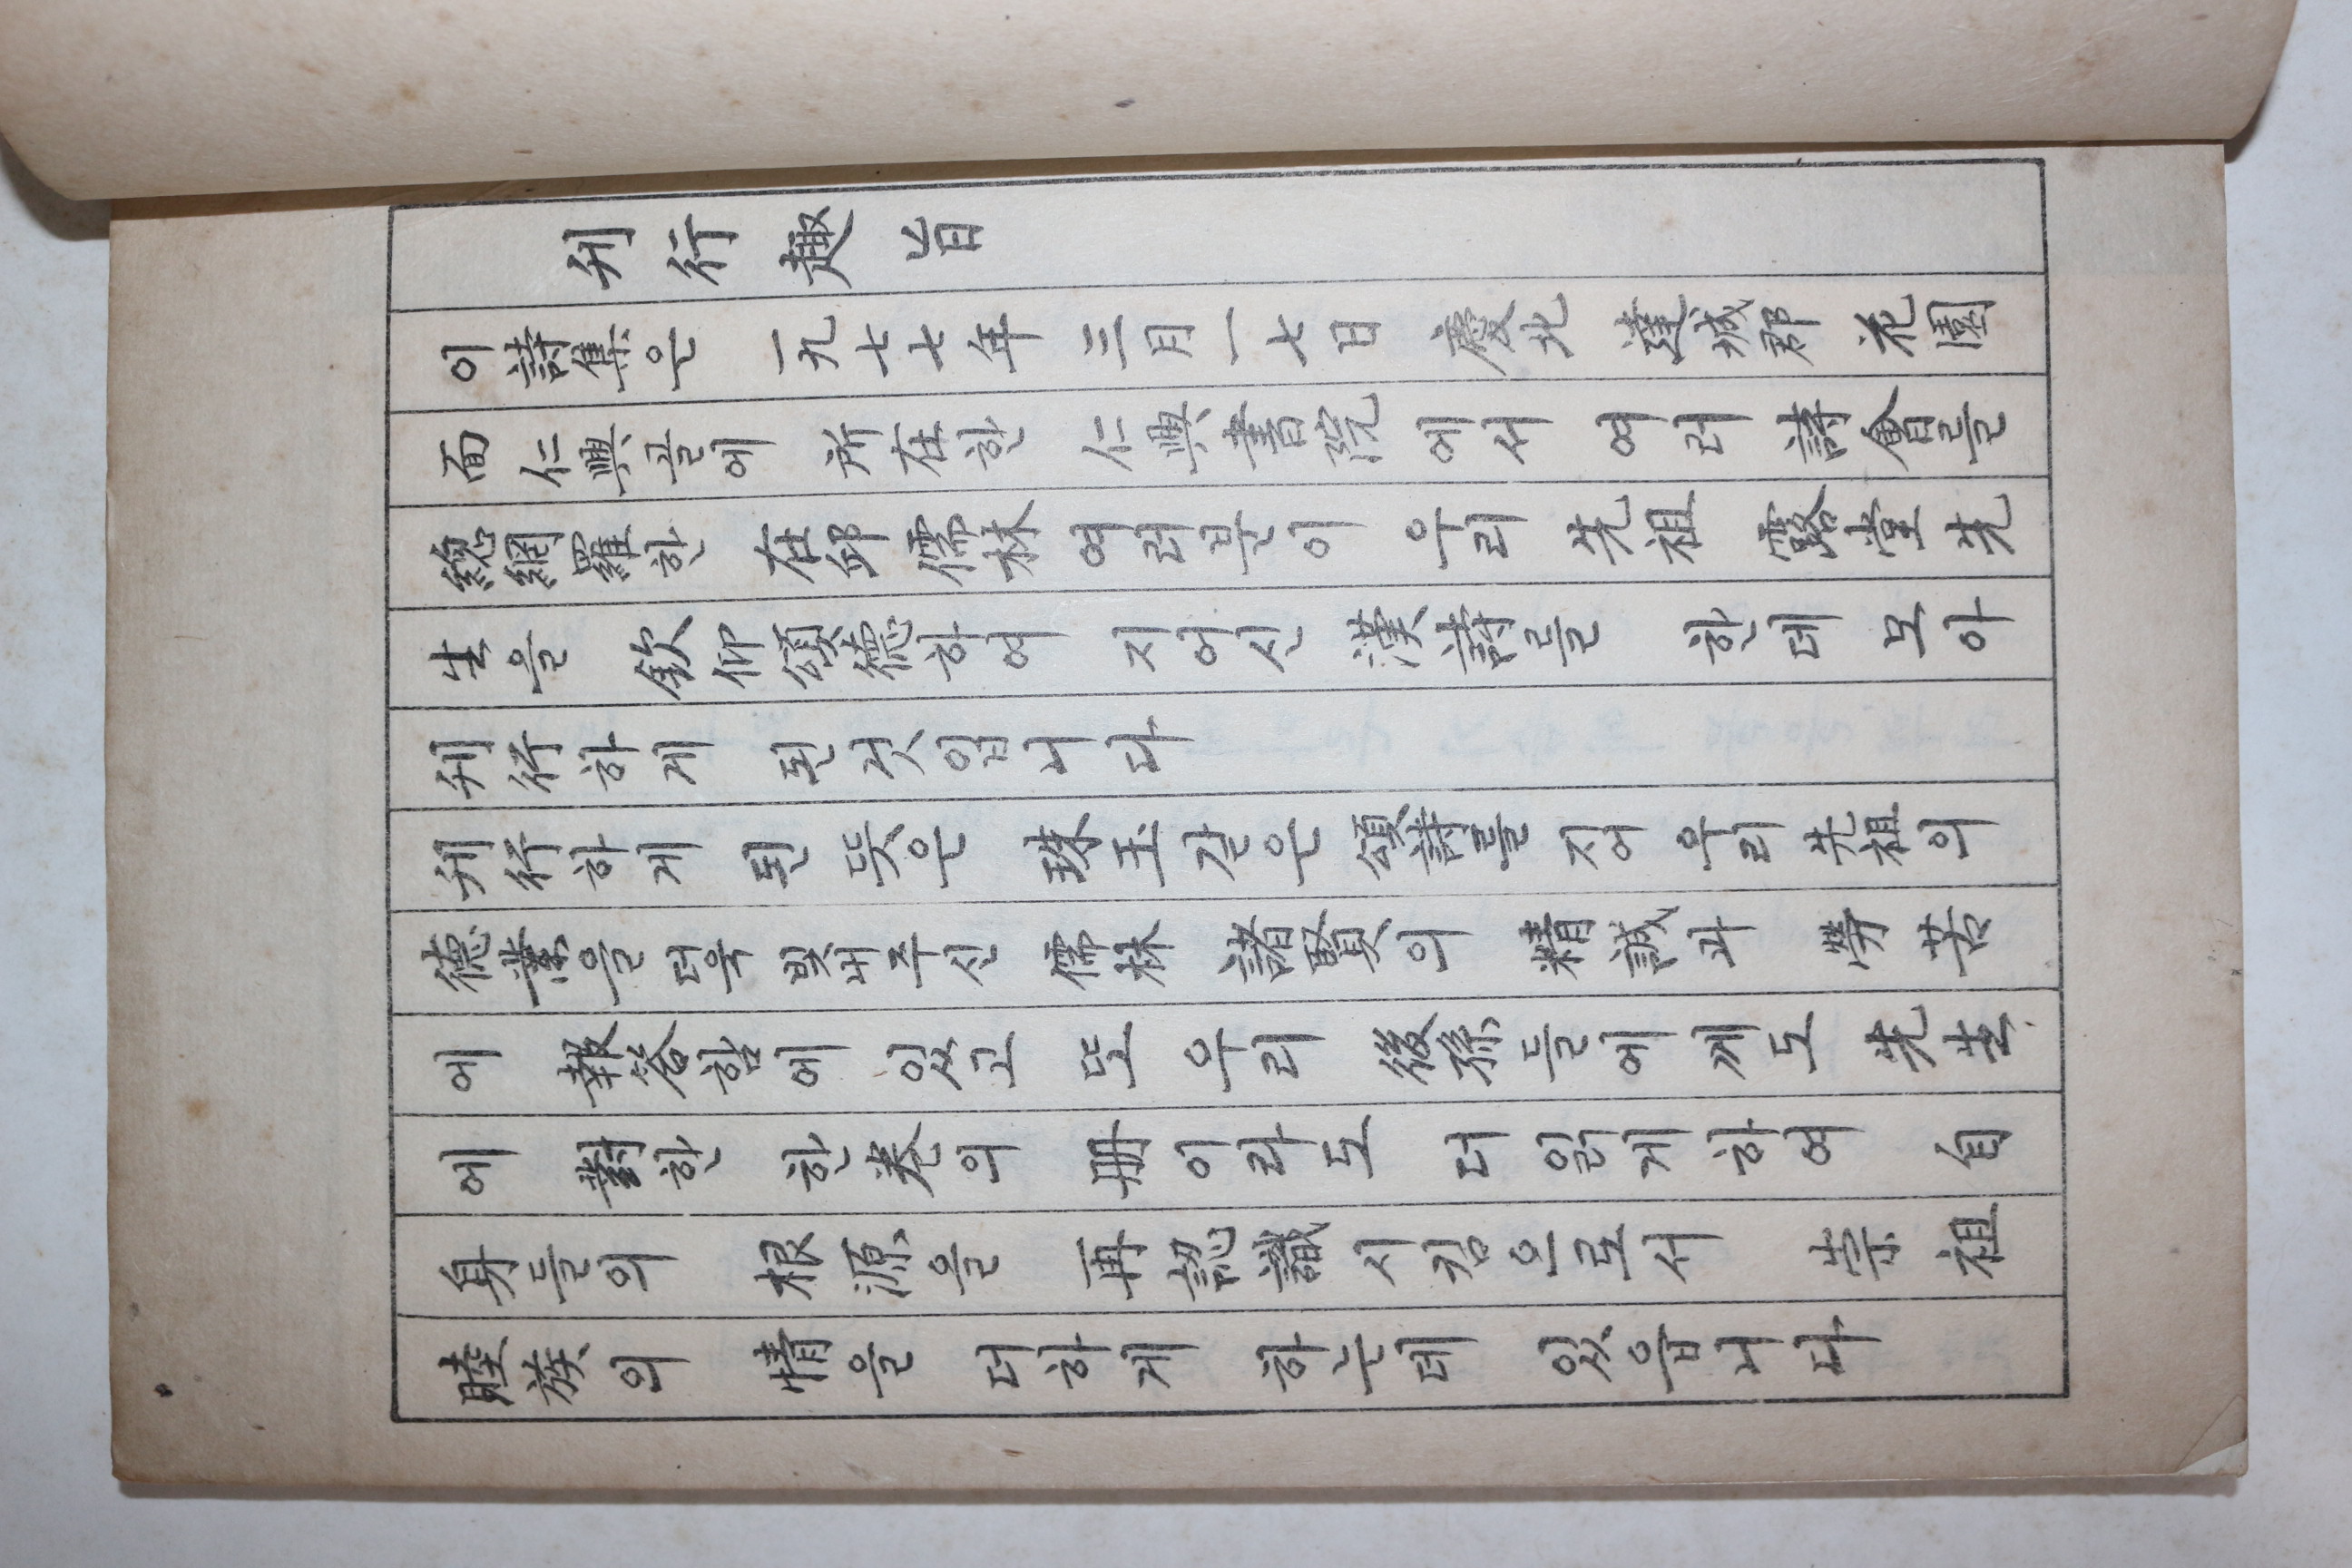 刊行趣旨
이 詩集은 一九七七年 三月 一七日 慶北 達城郡 花園
面 仁興골에 所在한 仁興書院에서 여러 詩會를
總網羅한 在邱儒林 여러분이 우리 先祖 露堂先
生을 欽仰頌德하여 지어신 漢詩를 한데 모아
刊行하게 된 것입니다
刊行하게 된 뜻은 珠玉같은 頌詩를 지어 우리 先祖의
德業을 더욱 빛내주신 儒林 諸賢의 精誠과 勞苦
에 報答함에 있고 또 우리 後孫들에게도 先生
에 對한 한 卷의 册이라도 더 읽게 하여 自
身들의 根源을 再認識시킴으로서 崇祖
睦族의 情을 더하게 하는데 있읍니다